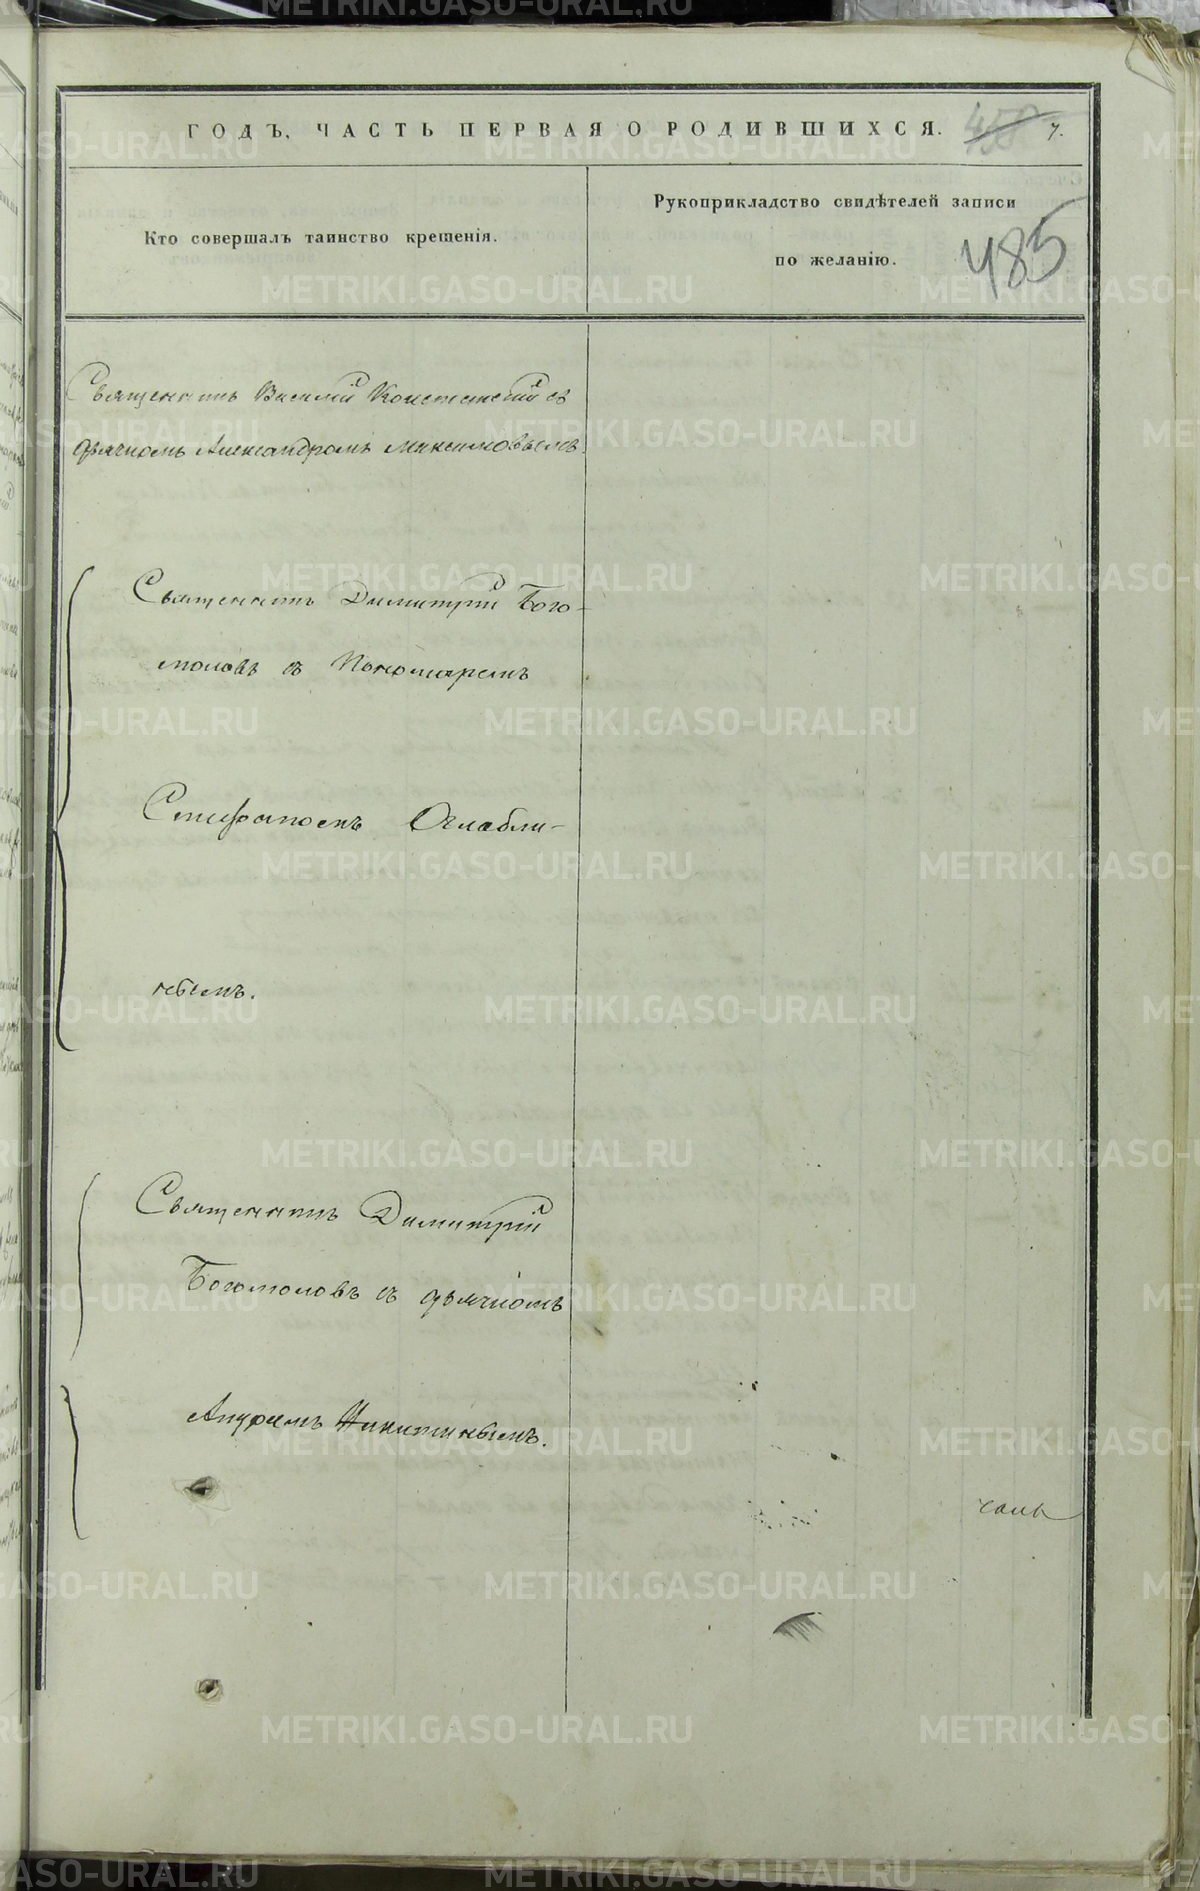 ГОДЪ, ЧАСТЬ ПЕРВАЯ О РОДИВШИХСЯ. 458 7.
Кто совершалъ таинство крещенія.
Рукоприкладство свидѣтелей записи
по желанію.
485
Священникъ Василій съ
дьячкомъ Александромъ Максимовымъ.
Священникъ Димитрій Бого-
моловъ съ Пономаремъ
Стефаномъ Оглобли-
нымъ.
Священникъ Димитрій
Богомоловъ съ дьячкомъ
Андреемъ Никитинымъ.
METRIKI.GASO-URAL.RU